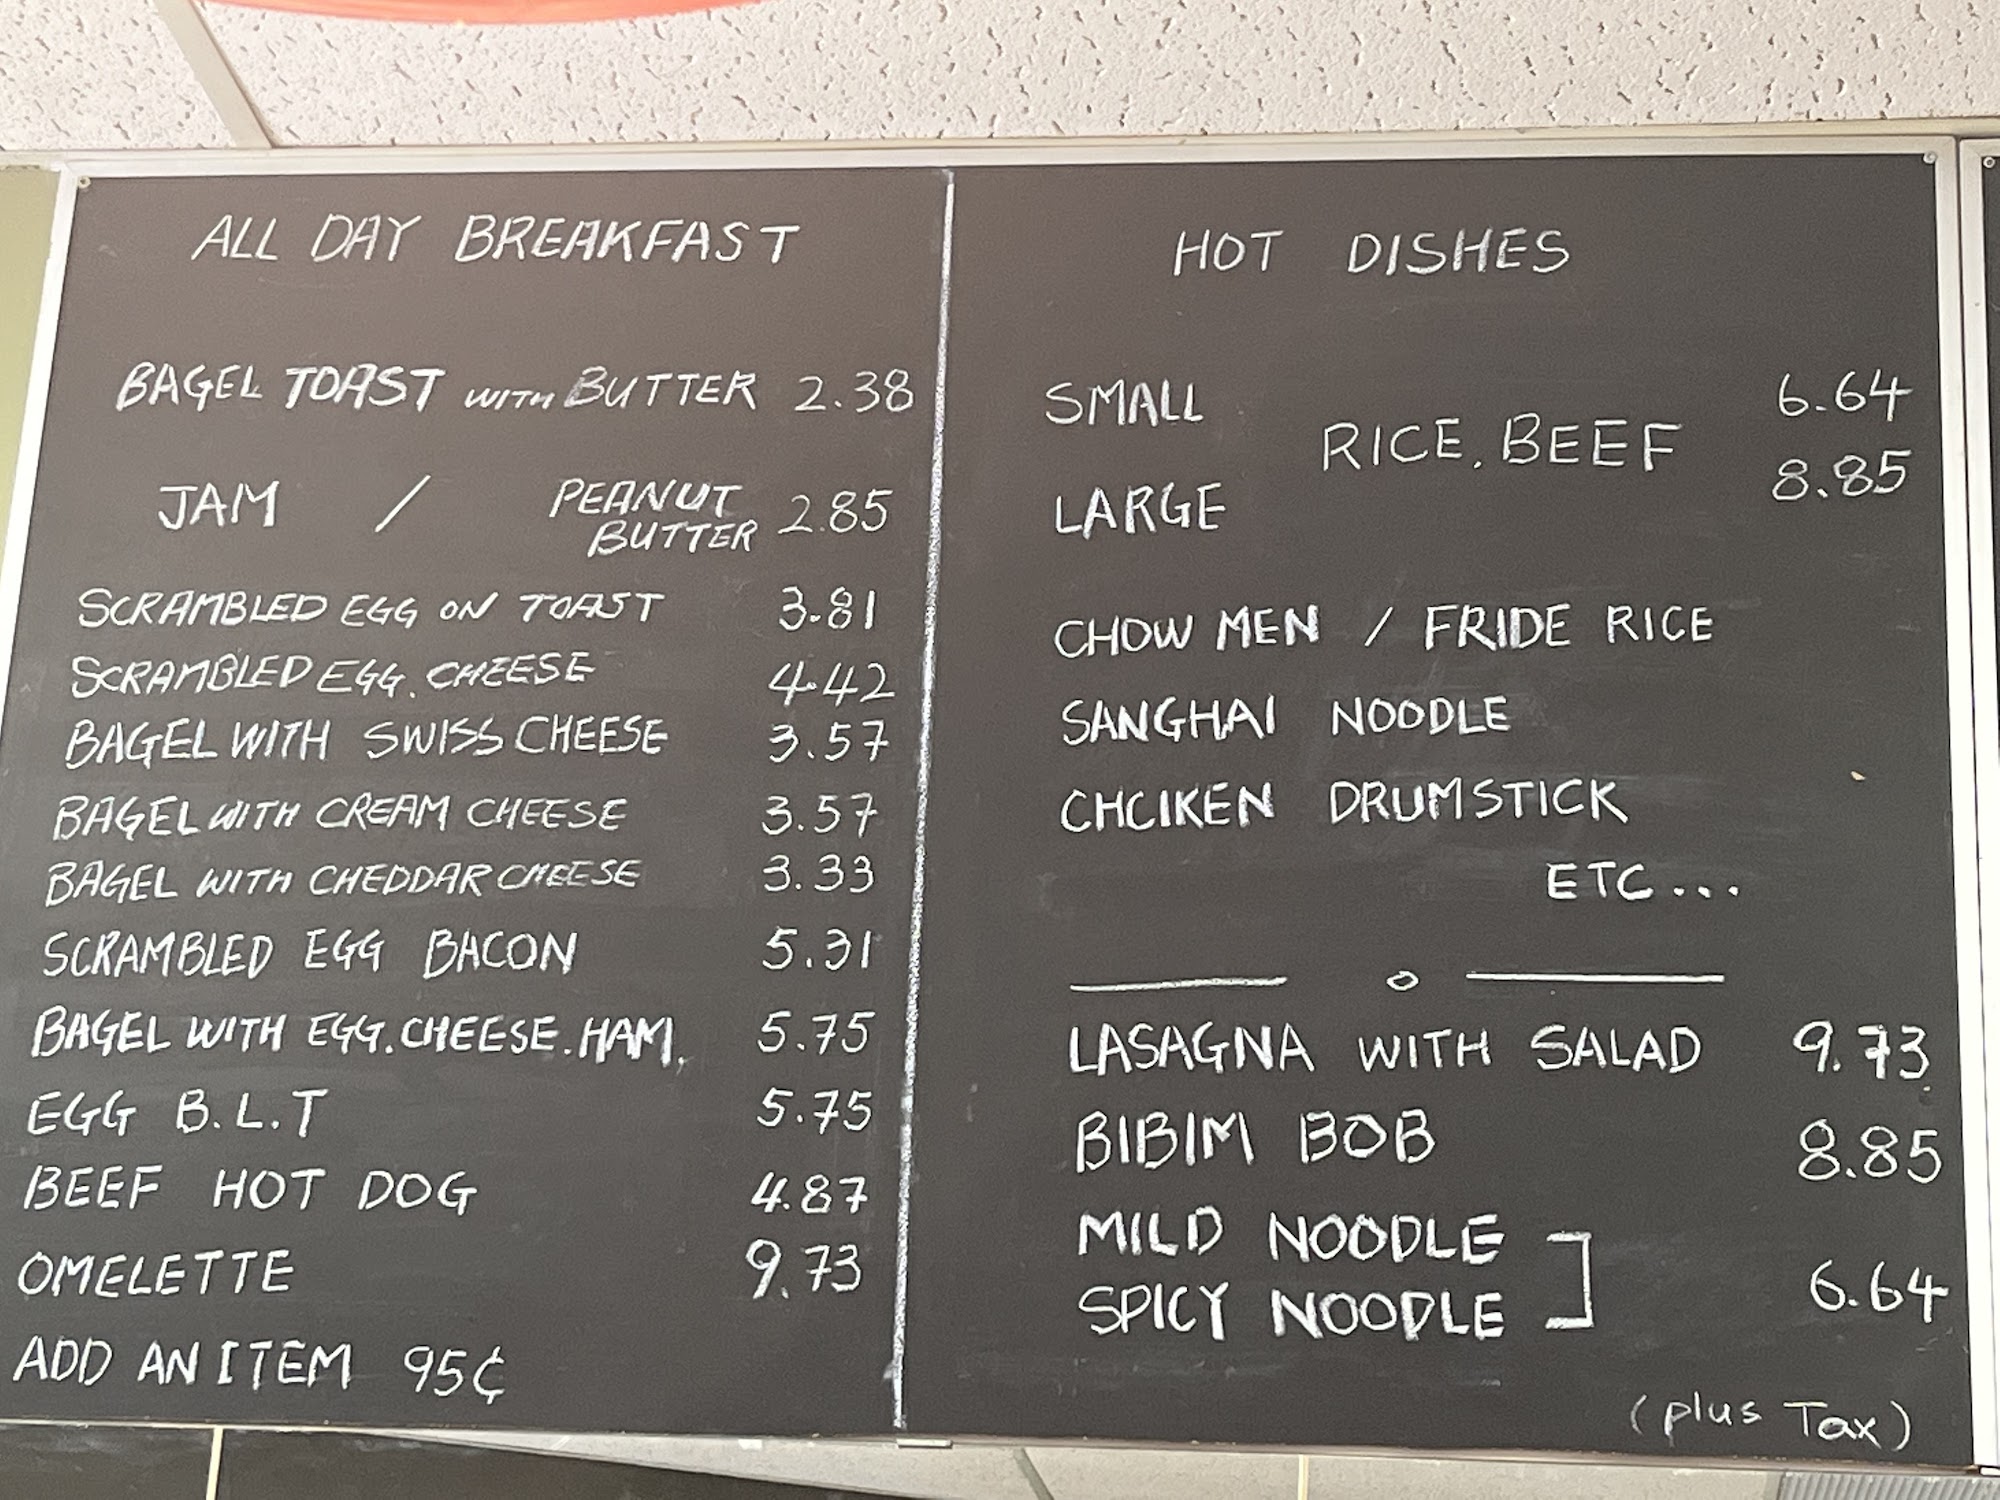 ALL DAY BREAKFAST
BAGEL TOAST WITH BUTTER 2.38
JAM / PEANUT BUTTER 2.85
SCRAMBLED EGG ON TOAST 3.81
SCRAMBLED EGG. CHEESE 4.42
BAGEL WITH SWISS CHEESE 3.57
BAGEL WITH CREAM CHEESE 3.57
BAGEL WITH CHEDDAR CHEESE 3.33
SCRAMBLED EGG BACON 5.31
BAGEL WITH EGG.CHEESE.HAM. 5.75
EGG B.L.T 5.75
BEEF HOT DOG 4.87
OMELETTE 9.73
ADD AN ITEM 95¢
HOT DISHES
SMALL 6.64
RICE. BEEF
LARGE 8.85
CHOW MEN / FRIDE RICE
SANGHAI NOODLE
CHCIKEN DRUMSTICK
ETC...
LASAGNA WITH SALAD 9.73
BIBIM BOB 8.85
MILD NOODLE
SPICY NOODLE 6.64
(plus Tax)